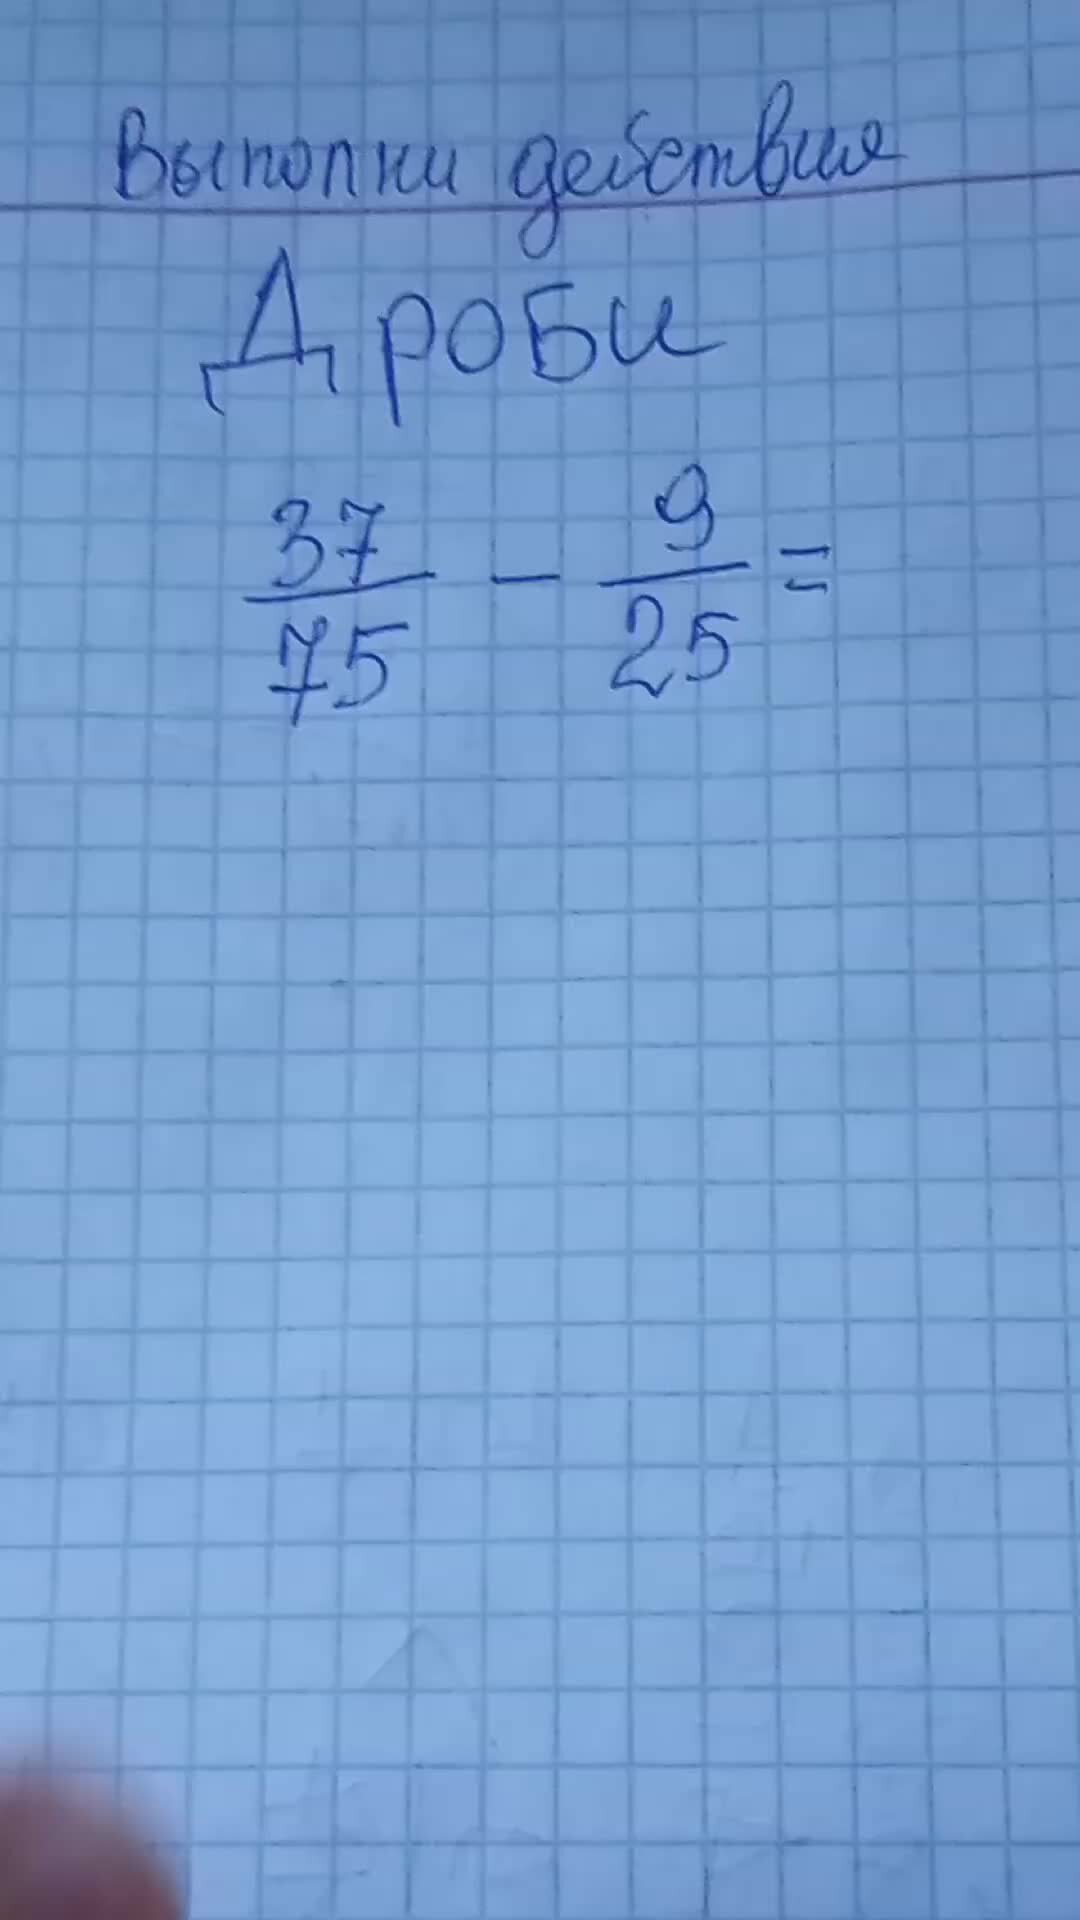 Выполни действия
Дроби
37/75 - 9/25 =